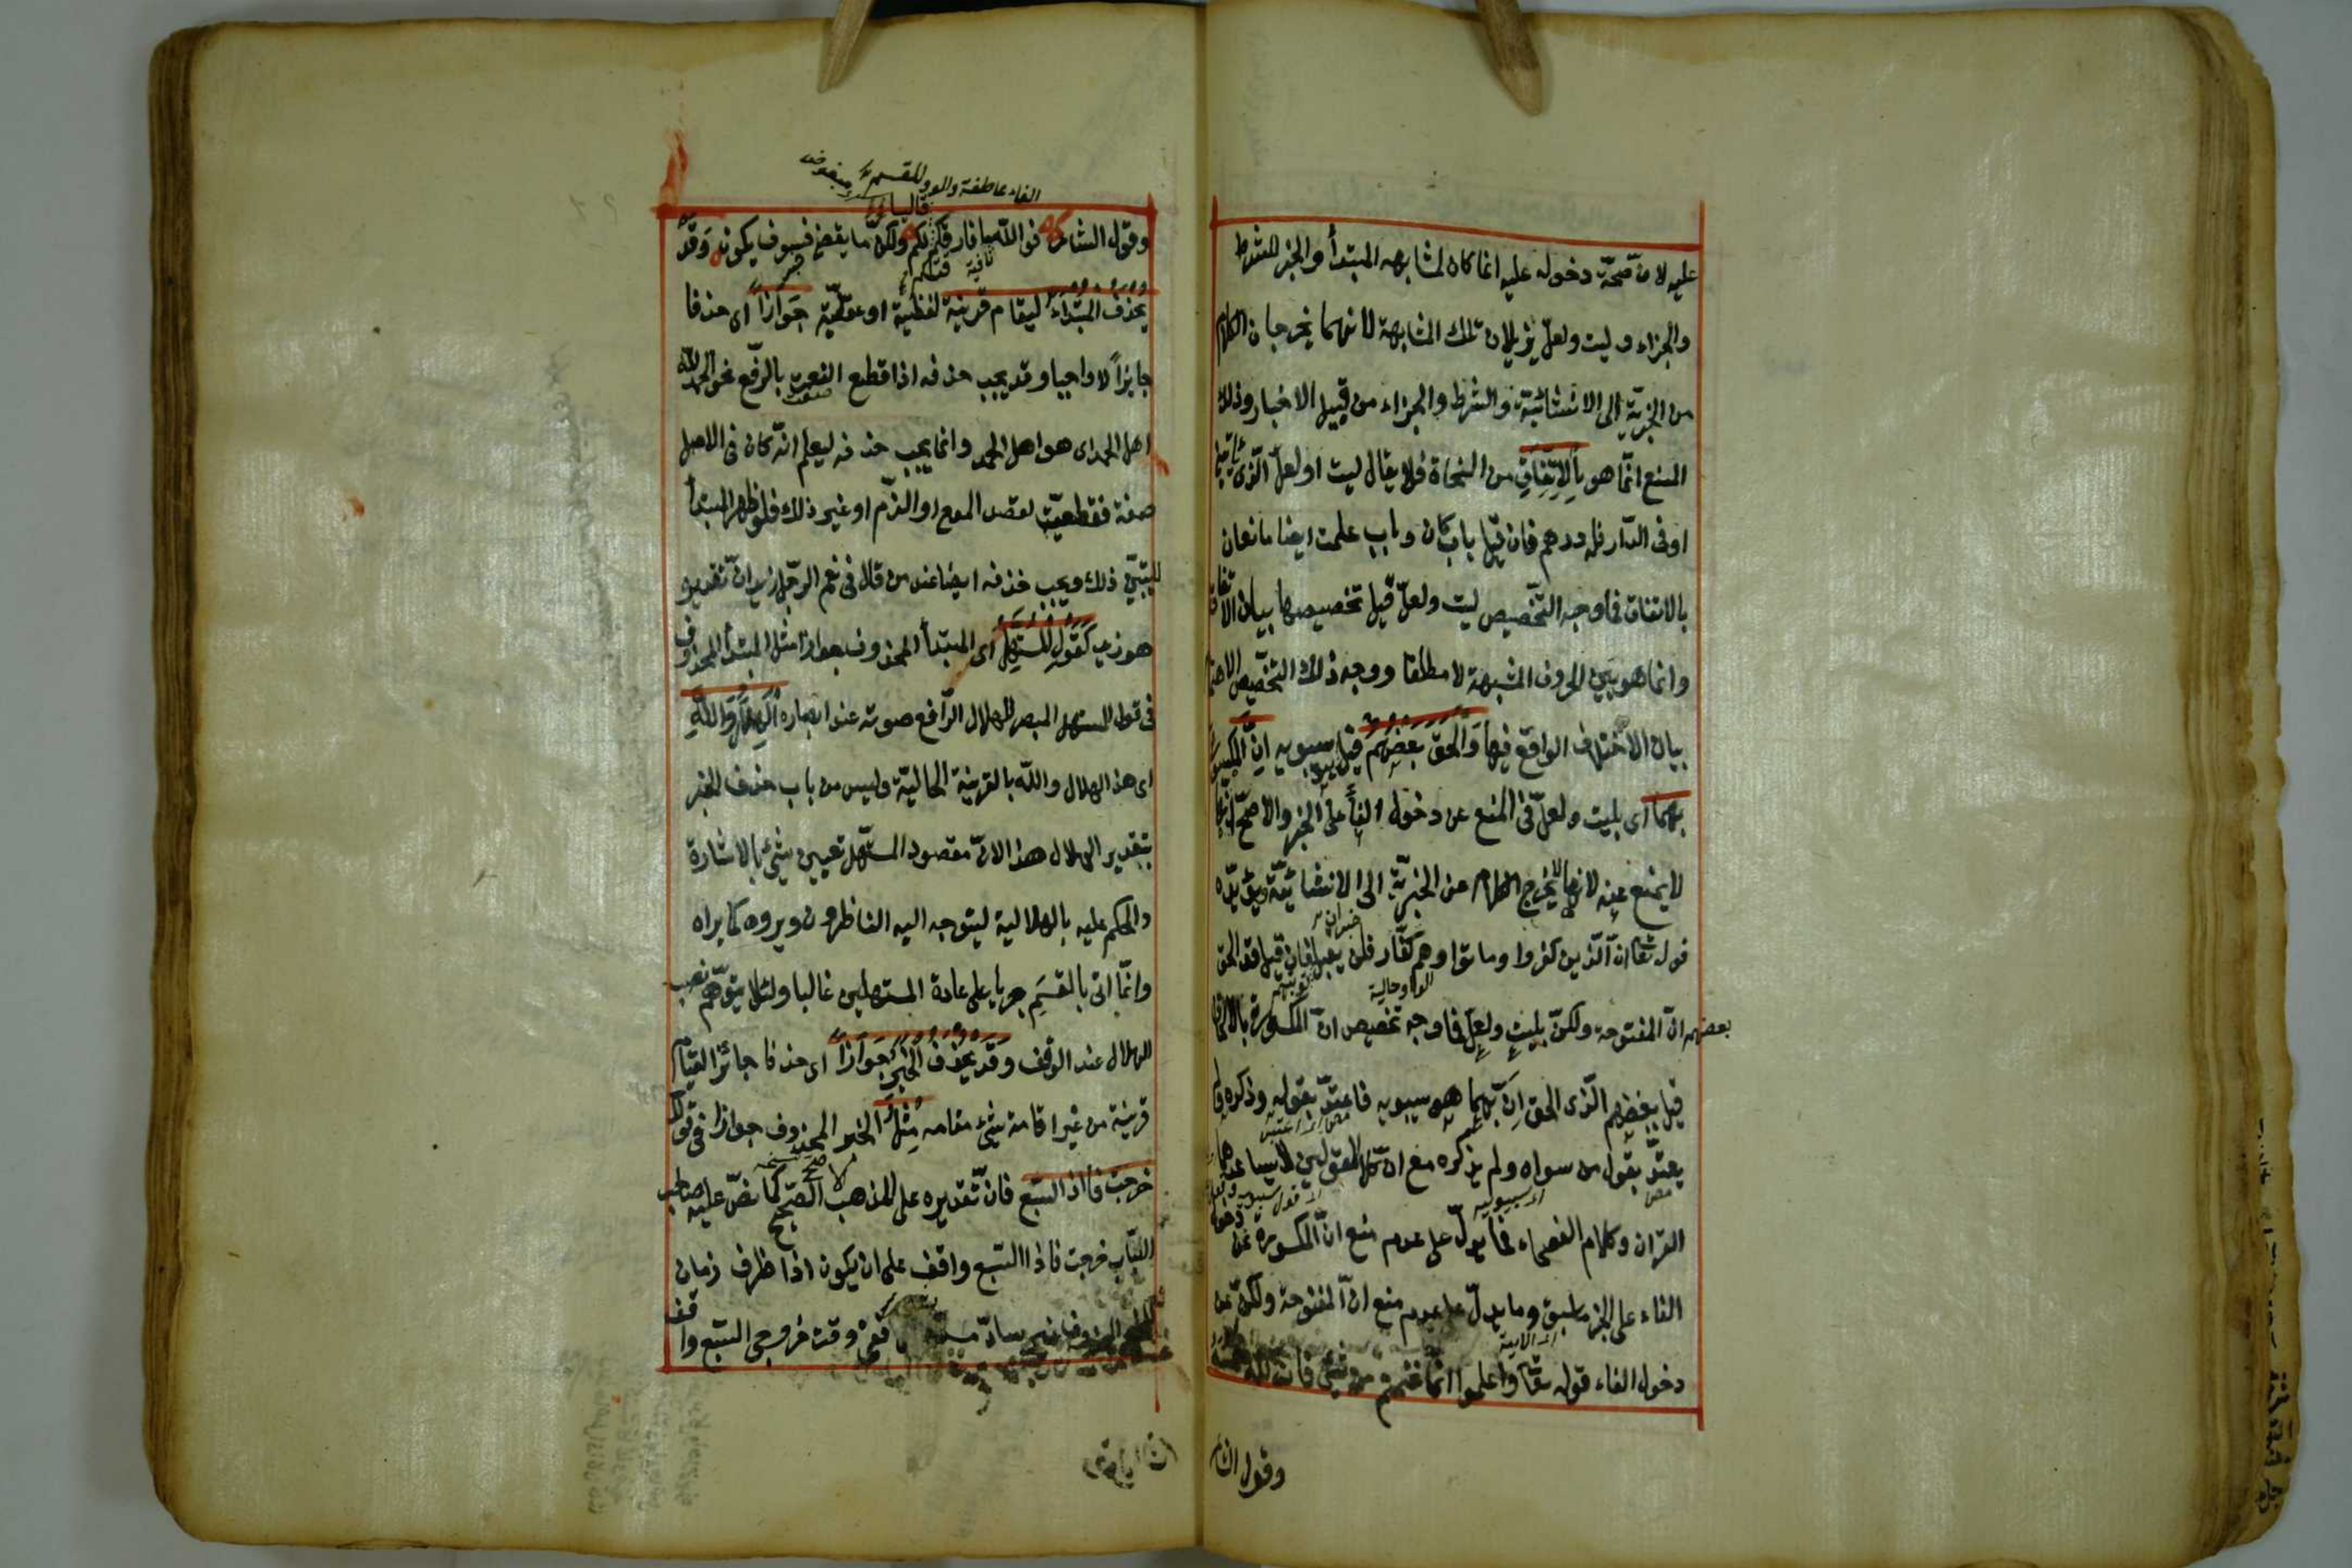 عليه لان صحة دخوله عليه انما كان لمشابهة المبتدأ والخبر للشرط
والجزاء وليت ولعل يزيلان تلك المشابهة لانهما يخرجان الكلام
من الخبرية الى الانشائية والشرط والجزاء من قبيل الاخبار وذلك
المنع انما هو بالاتفاق من النحاة فلا يقال ليت او لعل الذى يأتينى
او فى الدار فله درهم فان قيل باب كان وباب علمت ايضا مانعان
بالاتفاق فما وجه التخصيص ليت ولعل قيل تخصيصها ببيان الاتفاق
وانما هو بين الحروف المشبهة لا مطلقا ووجه ذلك التخصيص الاهتمام
بيان الاختلاف الواقع فيها والحق بعضهم قيل سيبويه ان المكسورة
بهما اى بليت ولعل فى المنع عن دخول الفاء على الخبر والاصح انها
لا يمنع عنه لانها لا يخرج الكلام عن الخبرية الى الانشائية ويؤيده
خبر ان
قوله تعا ان الذين كفروا وماتوا وهم كفار فلن يقبل فان قيل قد الحق
الواو حالية
بعضهم ان المفتوحة ولكن بليت ولعل فما وجه تخصيص ان المكسورة بالالحاق
قيل بعضهم الذى الحق ان بهما هو سيبويه فاعتد بقوله وذكره ولم
يعتد بقول من سواه ولم يذكره مع ان كلا القولين لا يساعدهما
القران وكلام الفصحاء فما يدل على عدم منع ان المكسورة عن
الفاء على الخبر ما سبق وما يدل على عدم منع ان المفتوحة ولكن عن
دخول الفاء قوله تعا واعلموا انما غنمتم من شئ فان لله خمسه
وقول الشا
الفاء عاطفة والواو للقسم
وقول الشاعر فوالله ما فارقتكم قاليا لكم ولكن ما يقضى فسوف يكون وقد
نافية
يحذف المبتداء لقيام قرينة لفظية او عقلية جوازا اى حذفا
جايزا لا واجبا وقد يجب حذفه اذا قطع النعت بالرفع نحو الحمد لله
اهل الحمد اى هو اهل الحمد وانما يجب حذفه ليعلم انه كان فى الاصل
صفة فقطعت لقصد المدح او الذم او غير ذلك فلو ظهر المبتدأ
لم يتبين ذلك ويجب حذفه ايضا عند من قال فى نعم الرجل زيد ان تقديره
هو زيد كقول المستهل اى المبتدأ المحذوف جوازا مثل المبتدأ المحذوف
فى قول المستهل المبصر للهلال الرافع صوته عند ابصاره الهلال والله
اى هذا الهلال والله بالقرينة الحالية وليس من باب حذف الخبر
بتقدير الهلال هذا لان مقصود المستهل تعيين شئ بالاشارة
والحكم عليه بالهلالية ليتوجه اليه الناظرون ويروه كما يراه
وانما اتى بالقسم جريا على عادة المستهلين غالبا ولئلا يتوهم نصب
الهلال عند الوقف وقد يحذف الخبر جوازا اى حذفا جائزا لقيام
قرينة من غير اقامة شئ مقامه مثل الخبر المحذوف جوازا فى قولك
خرجت فاذا السبع فان تقديره على المذهب الصحيح كما نص عليه صاحب
اللباب خرجت فاذا السبع واقف على ان يكون اذا ظرف زمان
للخبر المحذوف غير ساد مسده ففى وقت خروجى السبع واقف